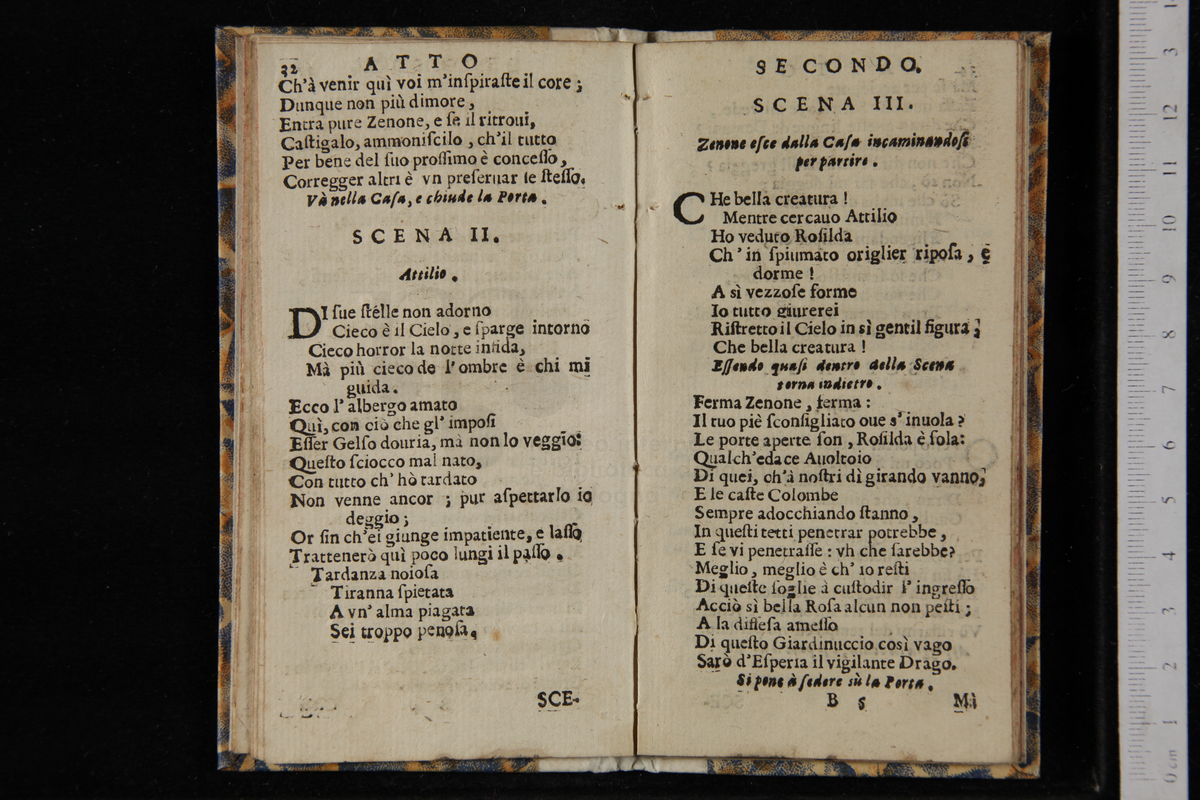 32 ATTO
Ch'à venir quì voi m'inſpiraſte il core ;
Dunque non più dimore ,
Entra pure Zenone, e ſe il ritroui,
Caſtigalo, ammoniſcilo , ch'il tutto
Per bene del ſuo proſſimo è conceſſo ,
Corregger altri è vn preſeruar ſe ſteſſo.
Và nella Caſa, e chiude la Porta .
SCENA II.
Attilio .
DI ſue ſtelle non adorno
Cieco è il Cielo , e ſparge intorno
Cieco horror la notte infida,
Mà più cieco de l'ombre è chi mi
guida.
Ecco l'albergo amato
Quì, con ciò che gl'impoſi
Eſſer Gelſo douria, mà non lo veggio:
Queſto ſciocco mal nato,
Con tutto ch'hò tardato
Non venne ancor ; pur aſpettarlo io
deggio ;
Or ſin ch'ei giunge impatiente, e laſſo
Trattenerò quì poco lungi il paſſo .
Tardanza noioſa
Tiranna ſpietata
A vn'alma piagata
Sei troppo penoſa.
SCE-
SECONDO.
SCENA III.
Zenone eſce dalla Caſa incaminandoſi
per partire .
CHe bella creatura !
Mentre cercauo Attilio
Ho veduto Roſilda
Ch'in ſpiumato origlier ripoſa , e
dorme !
A sì vezzoſe forme
Io tutto giurerei
Riſtretto il Cielo in sì gentil figura ;
Che bella creatura !
Eſſendo quaſi dentro della Scena
torna indietro .
Ferma Zenone , ferma :
Il tuo piè ſconſigliato oue s'inuola ?
Le porte aperte ſon , Roſilda è ſola:
Qualch'edace Auoltoio
Di quei, ch'à noſtri dì girando vanno,
E le caſte Colombe
Sempre adocchiando ſtanno ,
In queſti tetti penetrar potrebbe ,
E ſe vi penetraſſe : vh che ſarebbe?
Meglio, meglio è ch'io reſti
Di queſte ſoglie à cuſtodir l'ingreſſo
Acciò sì bella Roſa alcun non peſti ;
A la difeſa ameſſo
Di queſto Giardinuccio così vago
Sarò d'Eſperia il vigilante Drago.
Si pone à ſedere sù la Porta .
B 5 Mì
0 cm 1 2 3 4 5 6 7 8 9 10 11 12 13 14